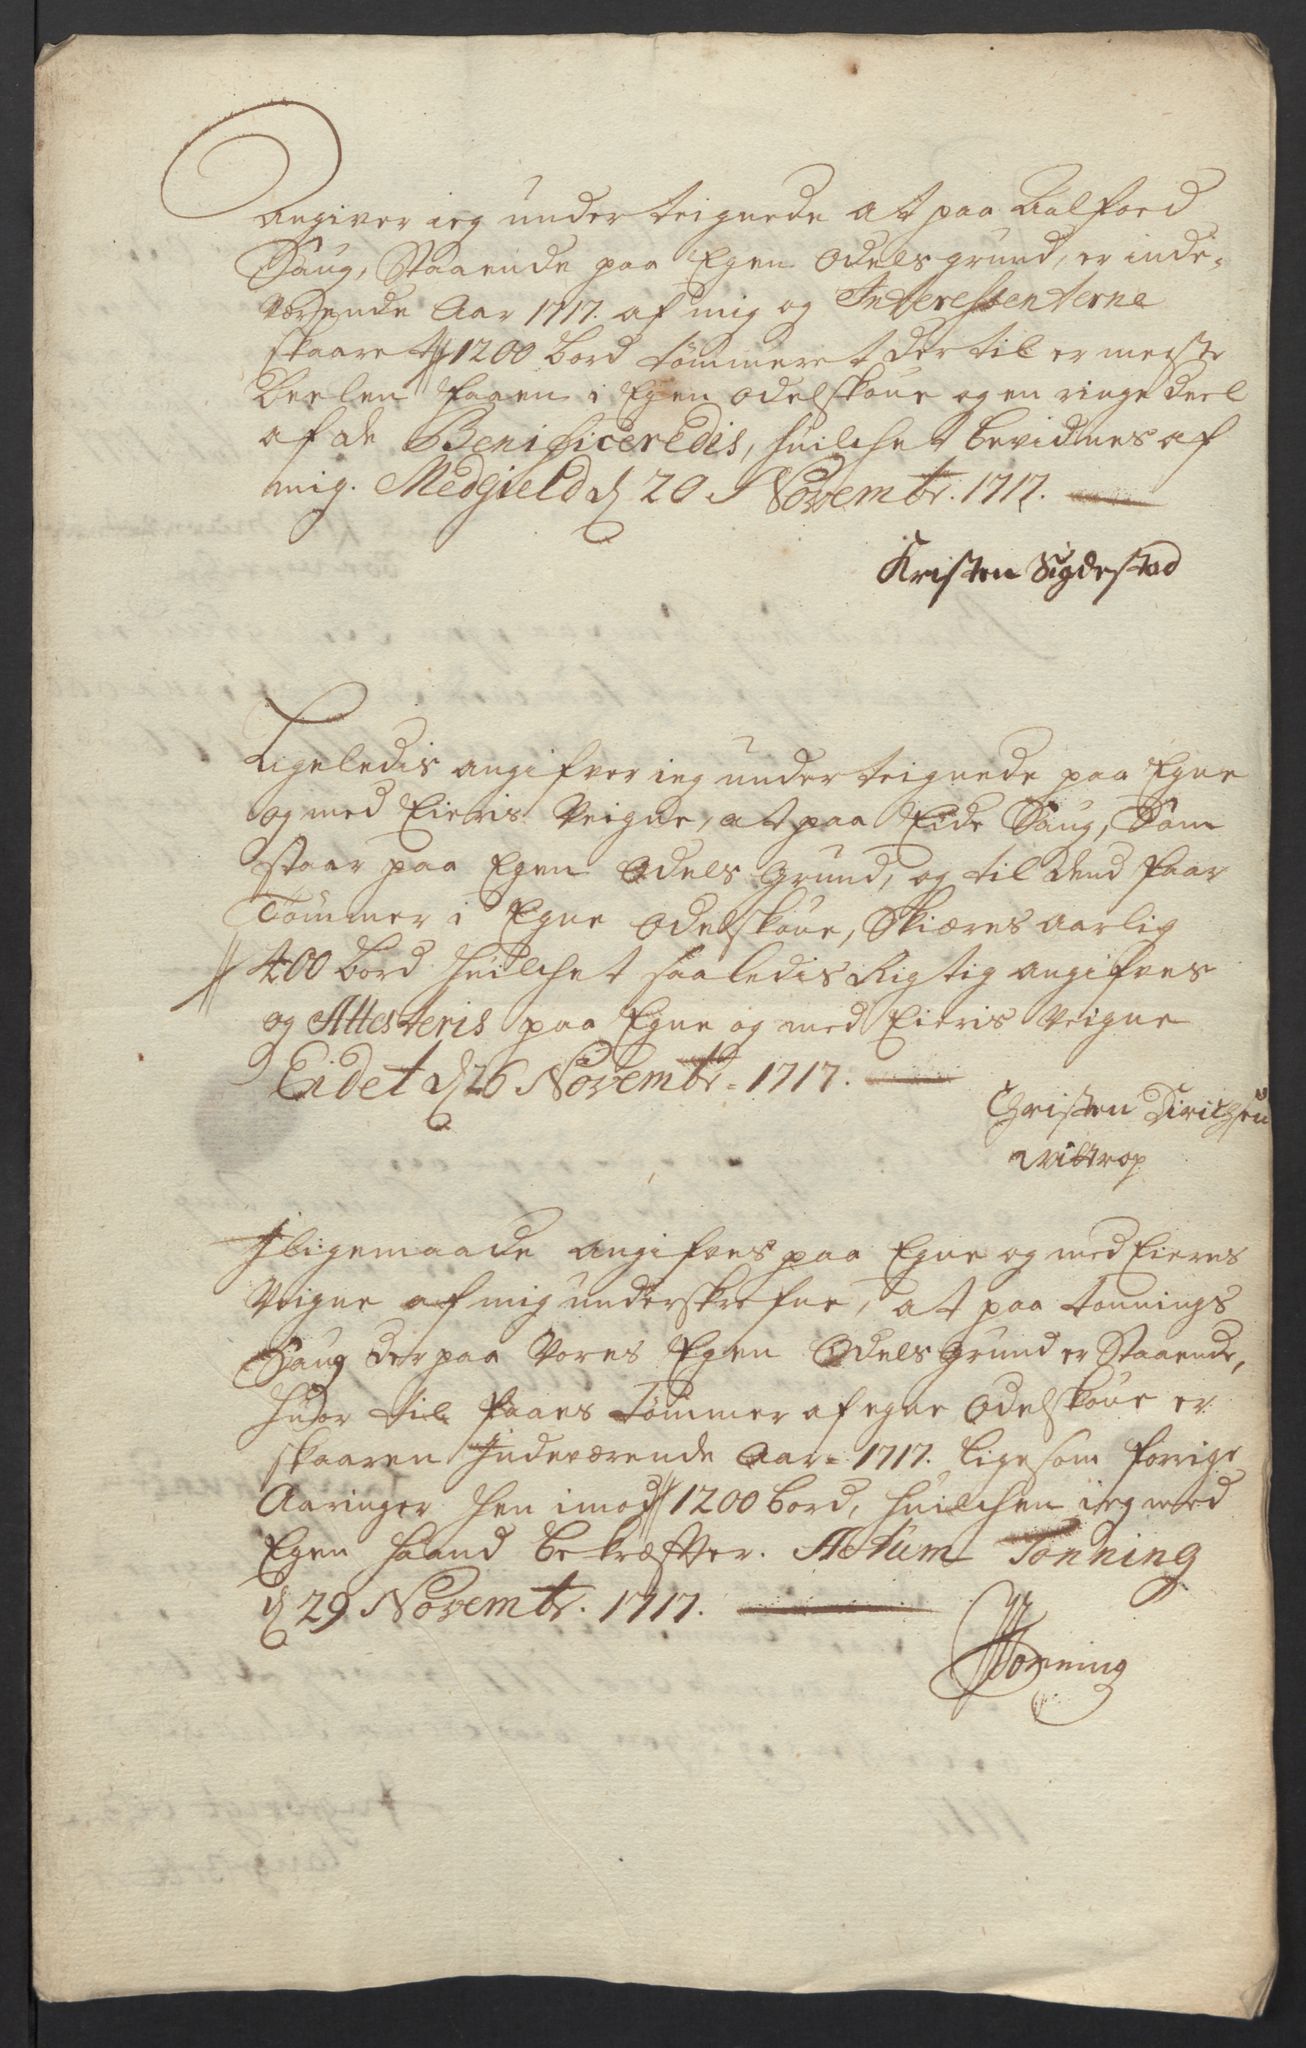 Angiver ieg underteignede at paa Aalfoed
Saug, Staaende paa Egen Odelsgrund, er inde-
værende Aar 1717. af mig og Interessenterne
skaaret 1200 bord tømmeret der til er meste
deelen faaen i Egen Odelskoue og en ringe deel
af de Benificeredis, huilchet bevidnes af
mig. Medgield d 20 Novembr. 1717.
Kristen Sigdestad
Ligeledis angifver ieg underteignede paa Egne
og med Eieris Veigne, at paa Eide Saug, Som
staar paa Egen Odels Grund, og til dend faar
Tømmer i Egne Odelskoue, Skiæres aarlig
400 bord huilchet saaledis Rigtig angifves
og Attesteris paa Egne og med Eieris Veigne
Eidet d 26 Novembr. 1717.
Christen Dirichsen
Wittrop
Jligemaade angifves paa Egne og med Eieres
Veigne af mig underskrefne, at paa tonnings
Saug der paa Vores Egen Odels Grund er Staaende,
huor til faaes Tømmer af egne Odelskoue er
skaaren Jndeværende Aar 1717. ligesom forrige
Aaringer hen imod 1200 bord, huilchen ieg med
Egen haand bekræfter. Actum Tonning
d 29 Novembr. 1717.
Tonning